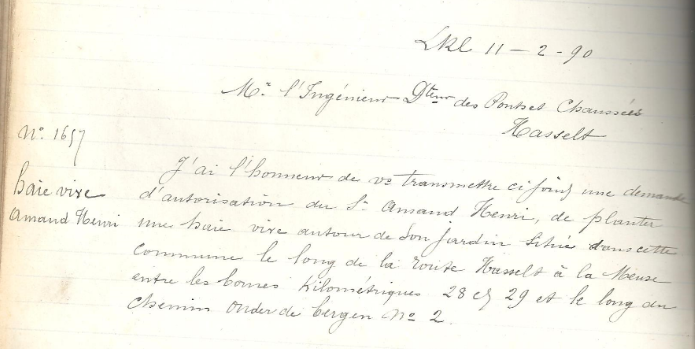 Lkl 11-2-90
Mr l'Ingénieur Dteur des Ponts et Chaussées
Hasselt
No. 1657
haie vive
Amand Henri
J'ai l'honneur de vs transmettre ci joint une demande
d'autorisation du Sr Amand Henri, de planter
une haie vive autour de son jardin situé dans cette
commune le long de la route Hasselt à la Meuse
entre les bornes kilométriques 28 et 29 et le long du
chemin onder de bergen No 2.